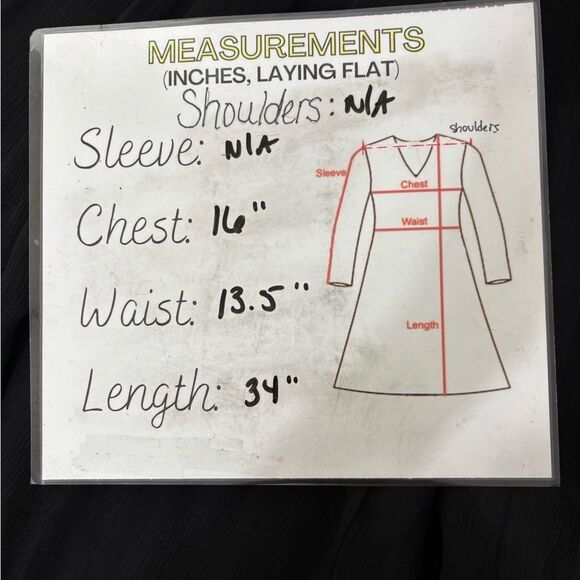 MEASUREMENTS
(INCHES, LAYING FLAT)
Shoulders: N/A
Sleeve: N/A
Chest: 16"
Waist: 13.5"
Length: 34"
shoulders
Sleeve
Chest
Waist
Length